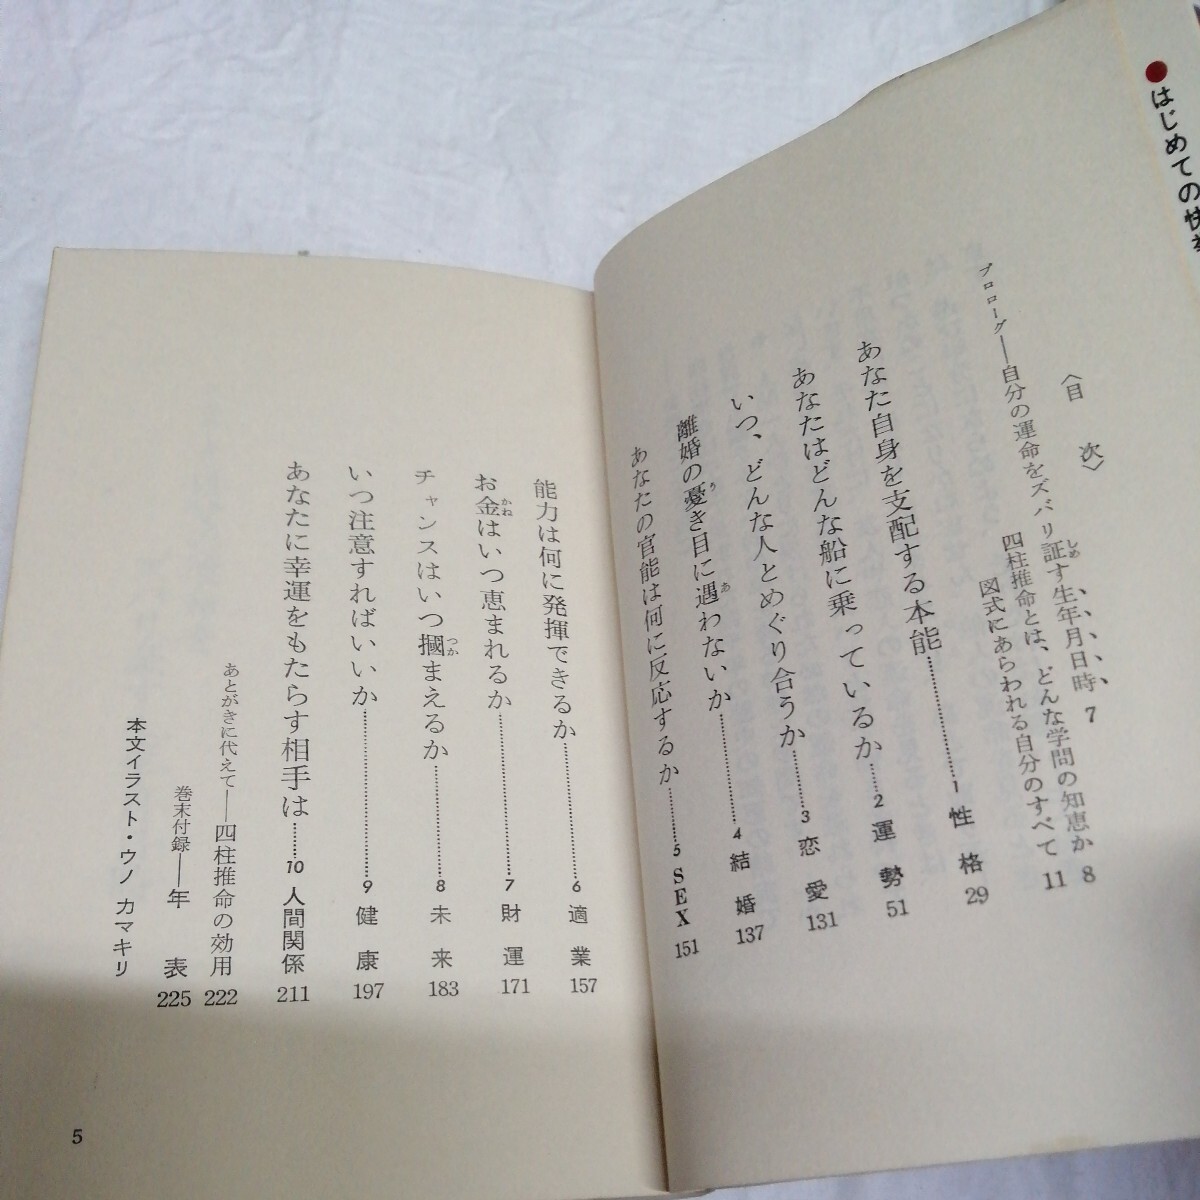 ●はじめての快
〈目次〉
プロローグ――自分の運命をズバリ証す生年月日時 7
四柱推命とは、どんな学問の知恵か 8
図式にあらわれる自分のすべて 11
あなた自身を支配する本能…………1 性格 29
あなたはどんな船に乗っているか…………2 運勢 51
いつ、どんな人とめぐり合うか…………3 恋愛 131
離婚の憂き目に遇わないか…………4 結婚 137
あなたの官能は何に反応するか…………5 SEX 151
能力は何に発揮できるか…………6 適業 157
お金はいつ恵まれるか…………7 財運 171
チャンスはいつ摑まえるか…………8 未来 183
いつ注意すればいいか…………9 健康 197
あなたに幸運をもたらす相手は…………10 人間関係 211
あとがきに代えて――四柱推命の効用 222
巻末付録――年表 225
本文イラスト・ウノ カマキリ
5